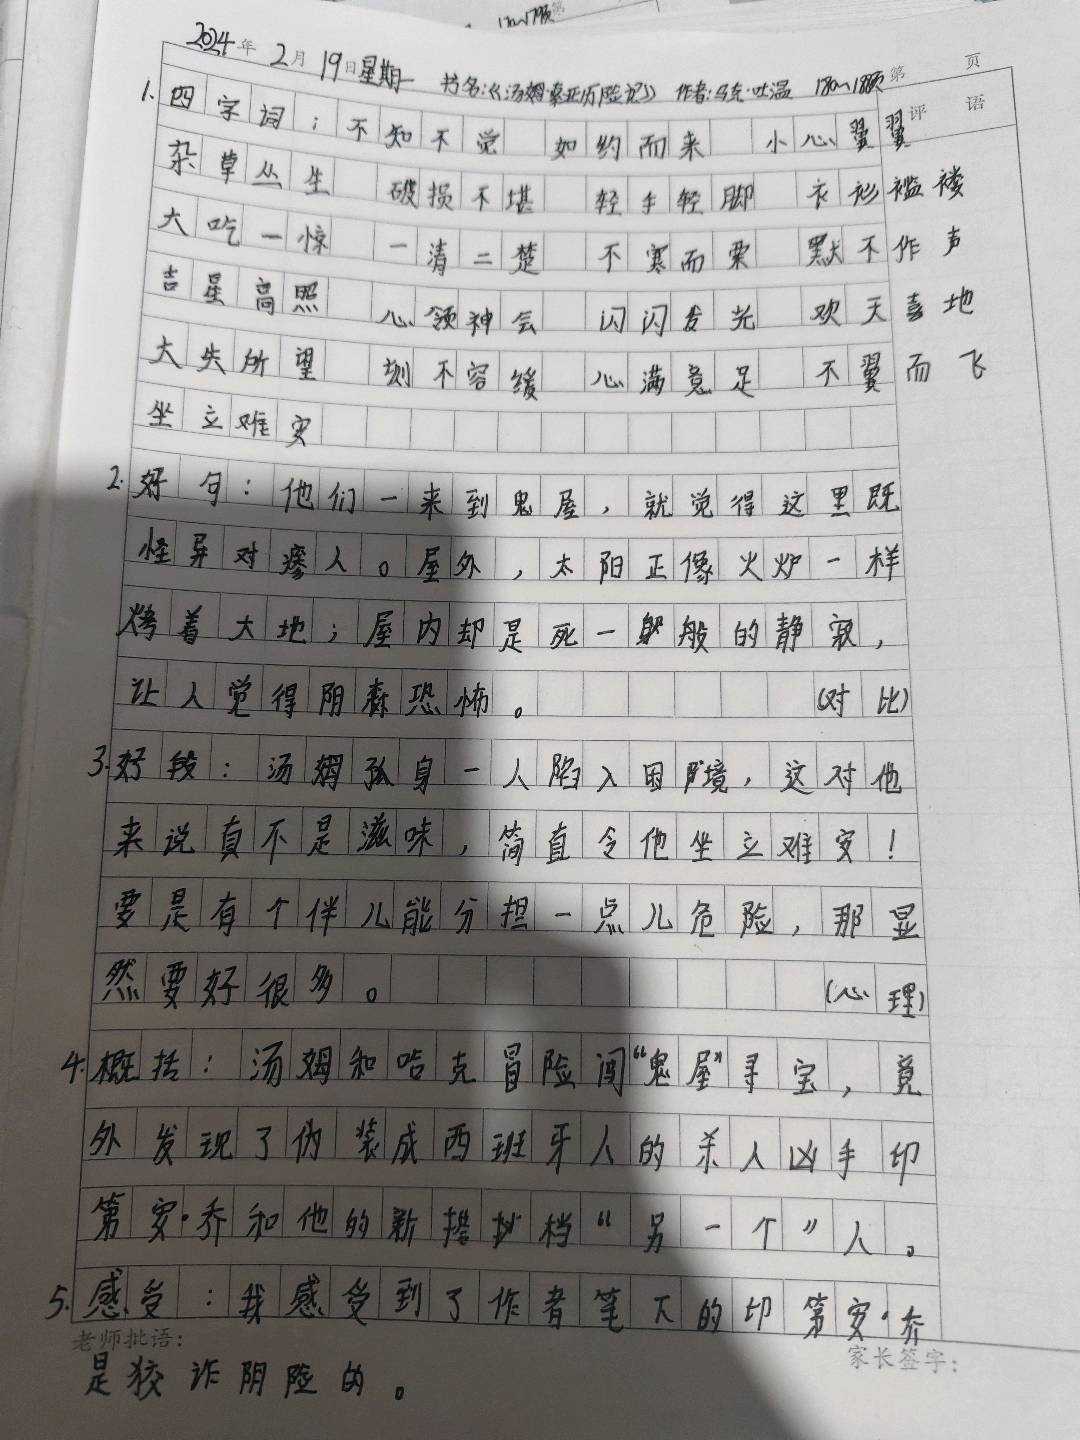 170~179页
2024年2月19日星期一 书名:《汤姆·索亚历险记》 作者:马克·吐温 180~188页 第 页
1.四字词：不知不觉 如约而来 小心翼翼 评语
杂草丛生 破损不堪 轻手轻脚 衣衫褴褛
大吃一惊 一清二楚 不寒而栗 默不作声
吉星高照 心领神会 闪闪发光 欢天喜地
大失所望 刻不容缓 心满意足 不翼而飞
坐立难安
2.好句：他们一来到鬼屋，就觉得这里既
怪异对瘆人。屋外，太阳正像火炉一样
烤着大地；屋内却是死一般的静寂，
让人觉得阴森恐怖。 (对比)
3.好段：汤姆孤身一人陷入困境，这对他
来说真不是滋味，简直令他坐立难安！
要是有个伴儿能分担一点儿危险，那显
然要好很多。 (心理)
4.概括：汤姆和哈克冒险闯“鬼屋”寻宝，竟
外发现了伪装成西班牙人的杀人凶手印
第安·乔和他的新搭档“另一个”人。
5.感受：我感受到了作者笔下的印第安·乔
老师批语: 家长签字:
是狡诈阴险的。